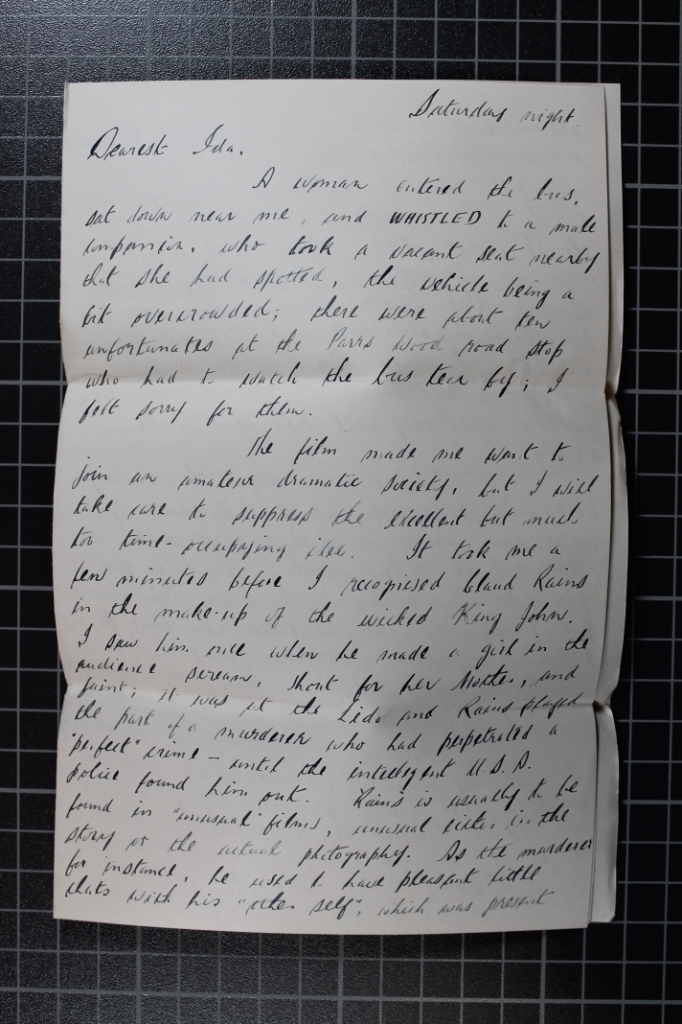 Saturday night.
Dearest Ida,
A woman entered the bus,
sat down near me, and WHISTLED to a male
companion, who took a vacant seat nearby
that she had spotted, the vehicle being a
bit overcrowded; there were about ten
unfortunates at the Parrs Wood road stop
who had to watch the bus tear by; I
felt sorry for them.
The film made me want to
join an amateur dramatic society, but I will
take care to suppress the excellent but much
too time-occupying idea. It took me a
few minutes before I recognised Claud Rains
in the make-up of the wicked King John.
I saw him once when he made a girl in the
audience scream, shout for her Mother, and
faint; it was at the Lido and Rains played
the part of a murderer who had perpetrated a
"perfect" crime – until the intelligent U.S.A.
police found him out. Rains is usually to be
found in "unusual" films, unusual either in the
story or the actual photography. As the murderer
for instance, he used to have pleasant little
chats with his "other self", which was present